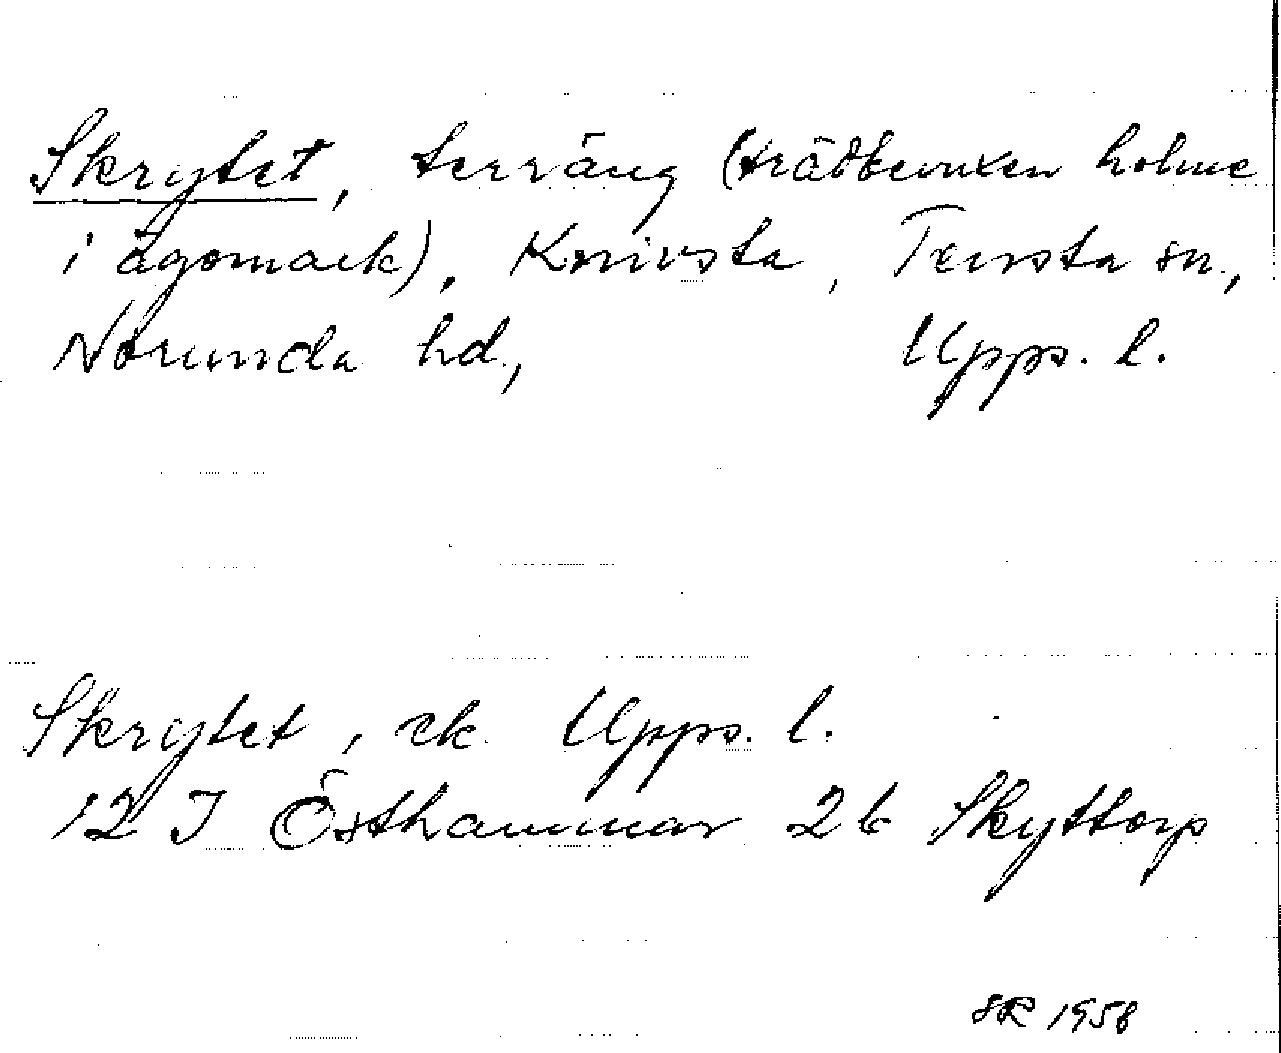 Skrytet, terräng (trädbevuxen holme
i ägomark), Knivsta, Tensta sn.,
Norunda hd., Upps. l.
Skrytet, ek. Upps. l.
12 I Östhammar 2b Skyttorp
SR 1958